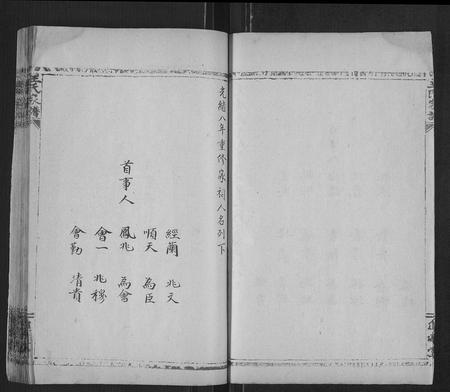 王氏家譜
光緒八年重修家祠人名列下
首事人
經蘭 兆文
順天 為臣
鳳兆 為會
會一 兆穆
會勤 清貴
王氏家譜